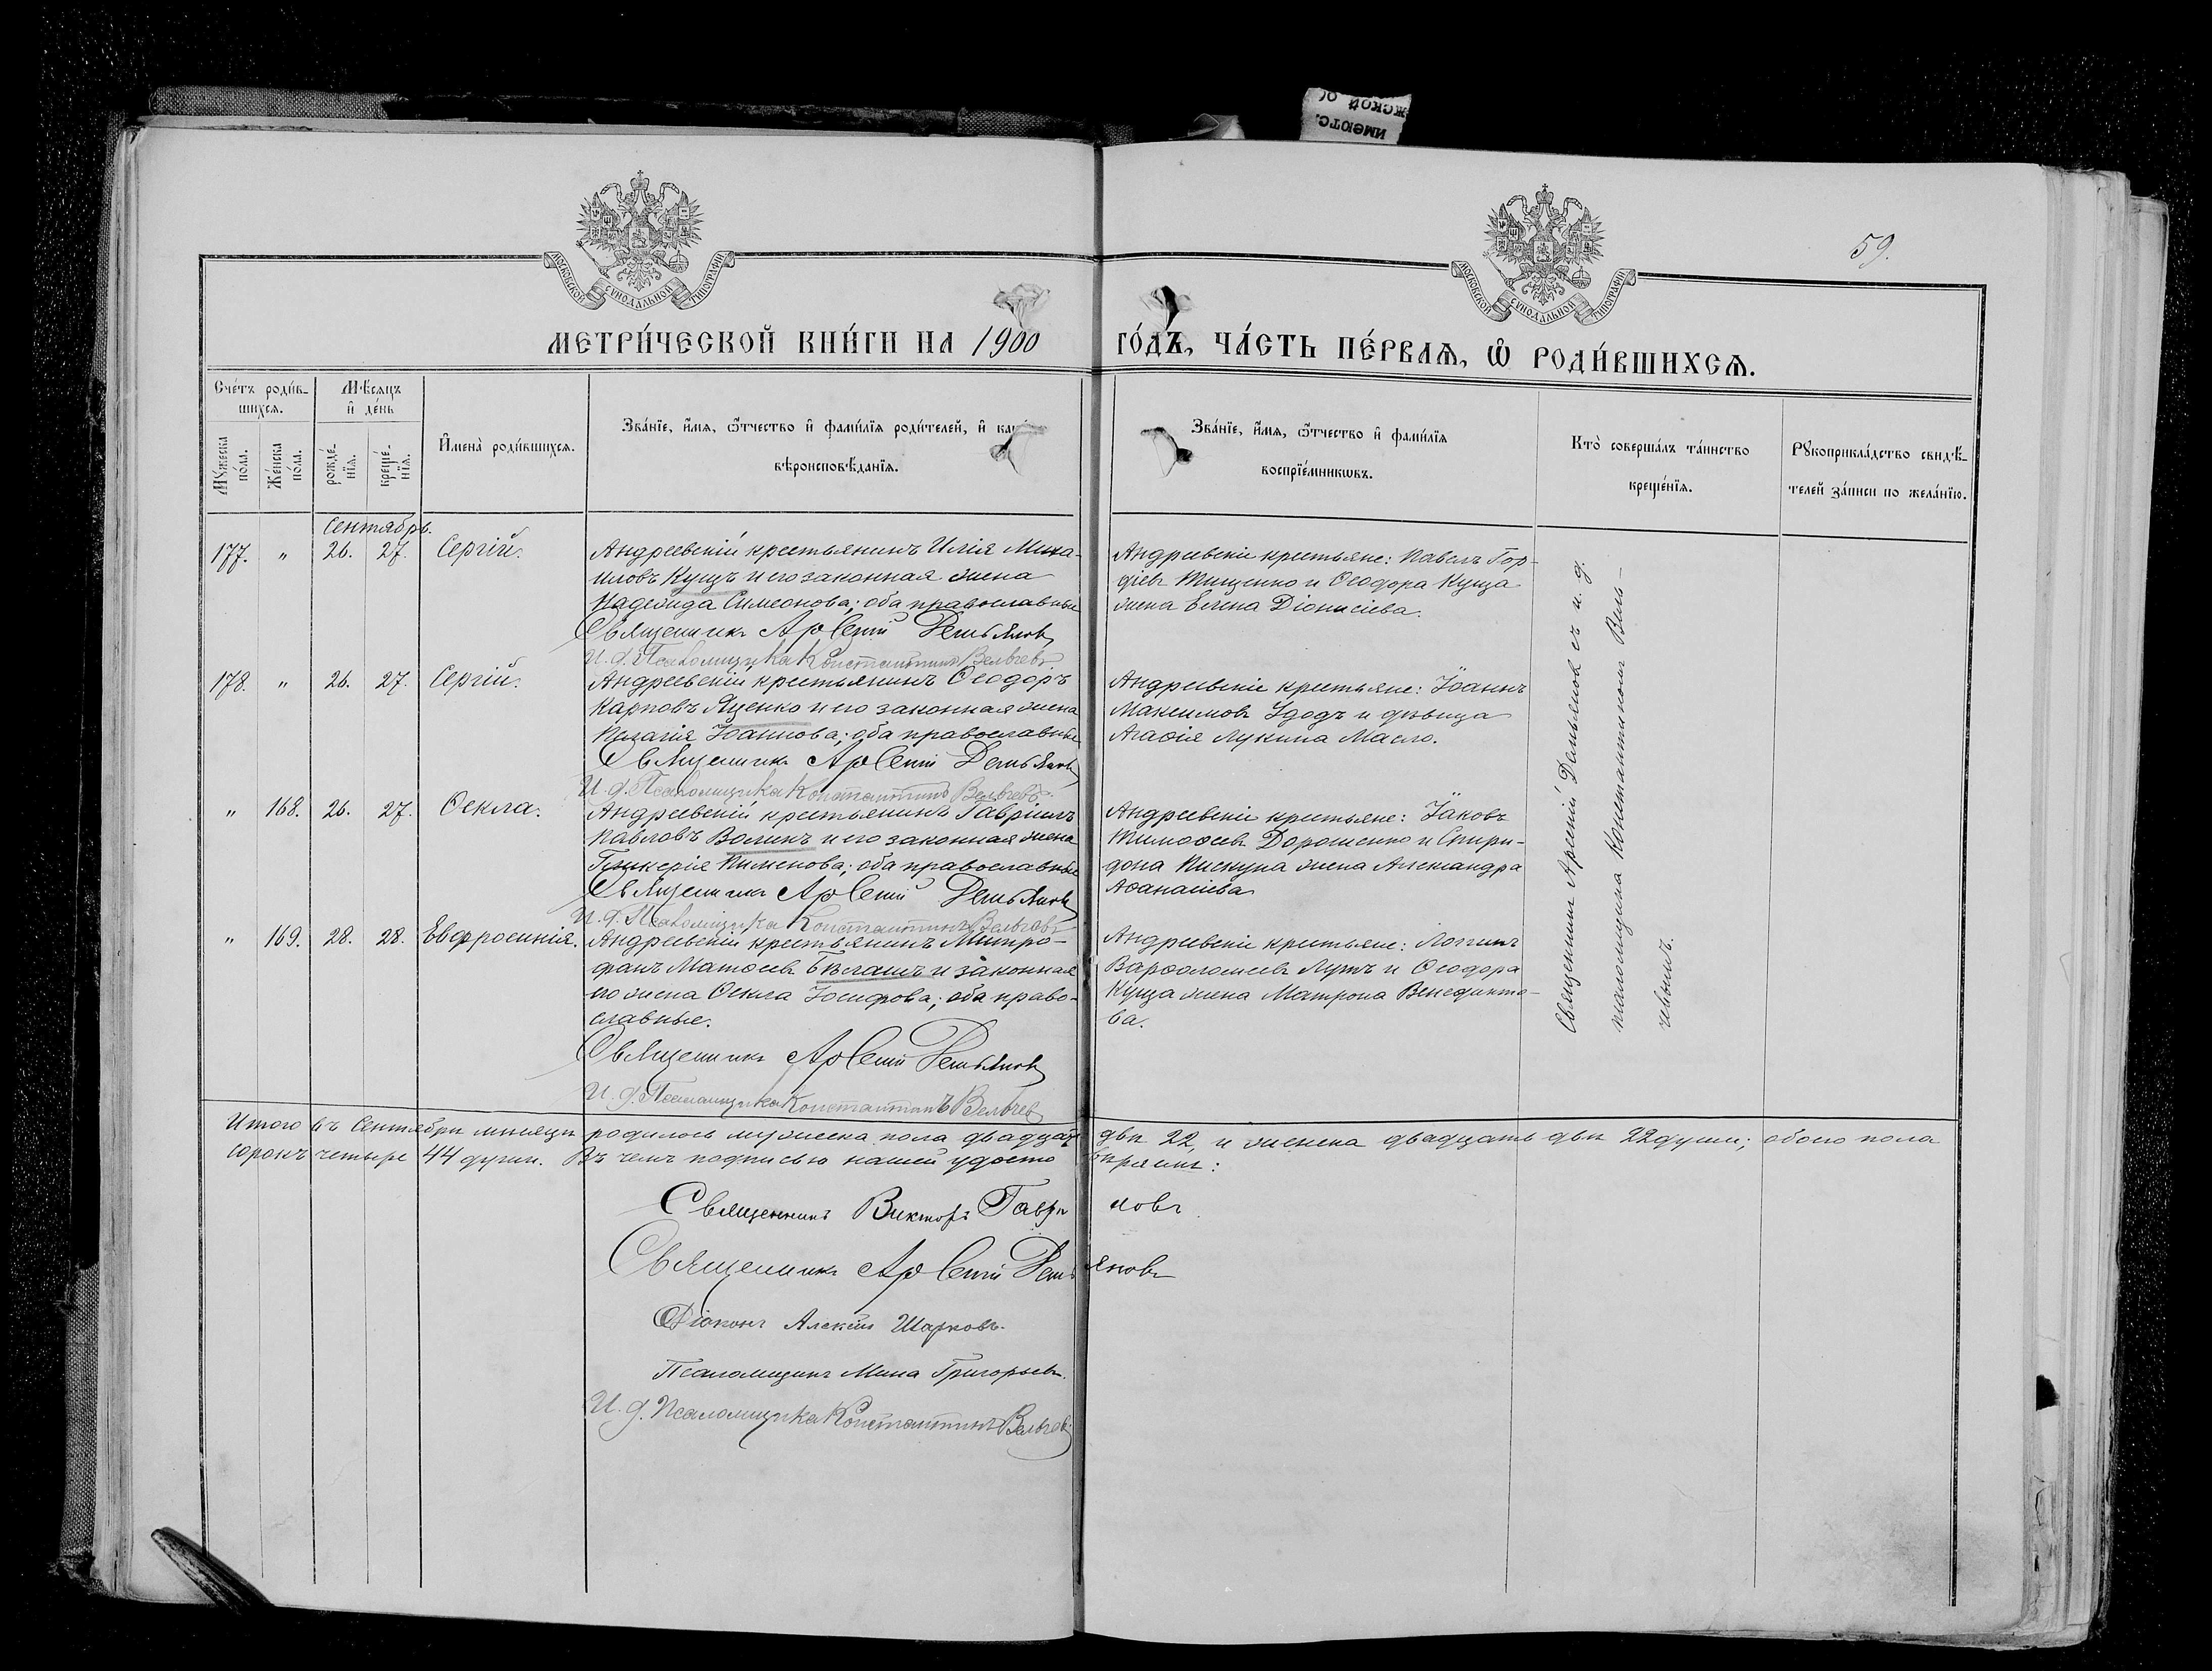 59.
МОСКОВСКОЙ СѴНОДАЛЬНОЙ ТИПОГРАФІИ
МОСКОВСКОЙ СѴНОДАЛЬНОЙ ТИПОГРАФІИ
МЕТРИ́ЧЕСКОЙ КНИ́ГИ НА 1900 ГО́ДЪ, ЧА́СТЬ ПЕ́РВАѦ, Ѡ҆ РОДИ́ВШИХСѦ.
Сче́тъ роди́в-
шихся.
Мѣ́сяцъ
и҆ де́нь
Мꙋ́жеска
по́ла.
Же́нска
по́ла.
рожде́-
нїѧ.
креще́-
нїѧ.
И҆мена̀ роди́вшихсѧ.
Зва́нїе, и҆́мѧ, ѻ҆́тчество и҆ фами́лїѧ роди́телей, и҆
вѣроисповѣ́данїѧ.
Зва́нїе, и҆́мѧ, ѻ҆́тчество и҆ фами́лїѧ
воспрїе́мникѡвъ.
Кто̀ соверша́лъ та́инство
креще́нїѧ.
Рꙋкоприкла́дство свидѣ́-
телей за́писи по жела́нїю.
Сентябрь.
177. „ 26. 27. Сергій.
Андреевскій крестьянинъ Илія Миха-
иловъ Кущъ и его законная жена
Надежда Симеонова; оба православные
Священникъ Арсеній Демьяновъ
И. д. Псаломщика Константинъ Вельчевъ
Андреевскіе крестьяне: Павелъ Гор-
діевъ Тищенко и Ѳеодора Куща
жена Елена Діонисіева.
178. „ 26. 27. Сергій.
Андреевскій крестьянинъ Ѳеодоръ
Карповъ Яценко и его законная жена
Пелагія Іоаннова; оба православные
Священникъ Арсеній Демьяновъ
И. д. Псаломщика Константинъ Вельчевъ.
Андреевскіе крестьяне: Іоаннъ
Максимовъ Удодъ и дѣвица
Агаѳія Лукина Масло.
„ 168. 26. 27. Ѳекла.
Андреевскій крестьянинъ Гавріилъ
Павловъ Воликъ и его законная жена
Гликерія Пименова; оба православные
Священникъ Арсеній Демьяновъ
И. д. Псаломщика Константинъ Вельчевъ
Андреевскіе крестьяне: Іаковъ
Тимоѳеевъ Дорошенко и Спири-
дона Пискуна жена Александра
Аѳанасіева
„ 169. 28. 28. Евфросинія.
Андреевскій крестьянинъ Митро-
фанъ Матѳеевъ Бѣлашъ и законная
его жена Ѳекла Іосифова; оба право-
славные.
Священникъ Арсеній Демьяновъ
И. д. Псаломщика Константинъ Вельчевъ
Андреевскіе крестьяне: Логгинъ
Варѳоломеевъ Лутъ и Ѳеодора
Куща жена Матрона Венедикто-
ва.
Священникъ Арсеній Демьяновъ съ и. д.
псаломщика Константиномъ Вель-
чевымъ.
Итого въ Сентябрѣ мѣсяцѣ родилось мужеска пола двадцать два 22, и женска двадцать двѣ 22 души; обоего пола
сорокъ четыре 44 души. Въ чемъ подписью нашей удостовѣряемъ:
Священникъ Викторъ Гавриловъ
Священникъ Арсеній Демьяновъ
Діаконъ Алексій Шарковъ.
Псаломщикъ Мина Григорьевъ.
И. д. Псаломщика Константинъ Вельчевъ